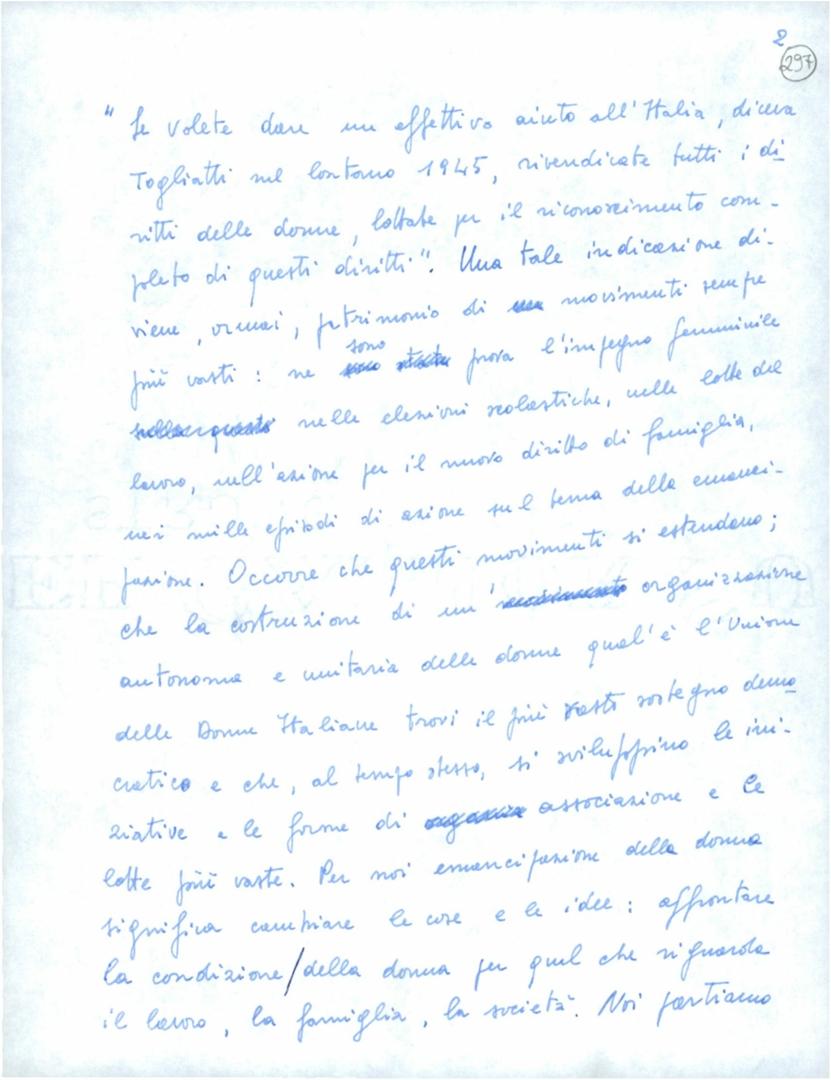 2
297
" Se volete dare un effettivo aiuto all'Italia, diceva
Togliatti nel lontano 1945, rivendicate tutti i di-
ritti delle donne, lottate per il riconoscimento com-
pleto di questi diritti". Una tale indicazione di-
viene, ormai, patrimonio di movimenti sempre
sono
più vasti : ne prova l'impegno femminile
nelle elezioni scolastiche, nelle lotte del
lavoro, nell'azione per il nuovo diritto di famiglia,
nei mille episodi di azione sul tema della emanci-
pazione. Occorre che questi movimenti si estendano;
che la costruzione di un' organizzazione
autonoma e unitaria delle donne qual'è l'Unione
delle Donne Italiane trovi il più vasto sostegno demo
cratico e che, al tempo stesso, si sviluppino le ini-
ziative e le forme di associazione e le
lotte più vaste. Per noi emancipazione della donna
significa cambiare le cose e le idee : affrontare
la condizione/della donna per quel che riguarda
il lavoro, la famiglia, la società. Noi partiamo